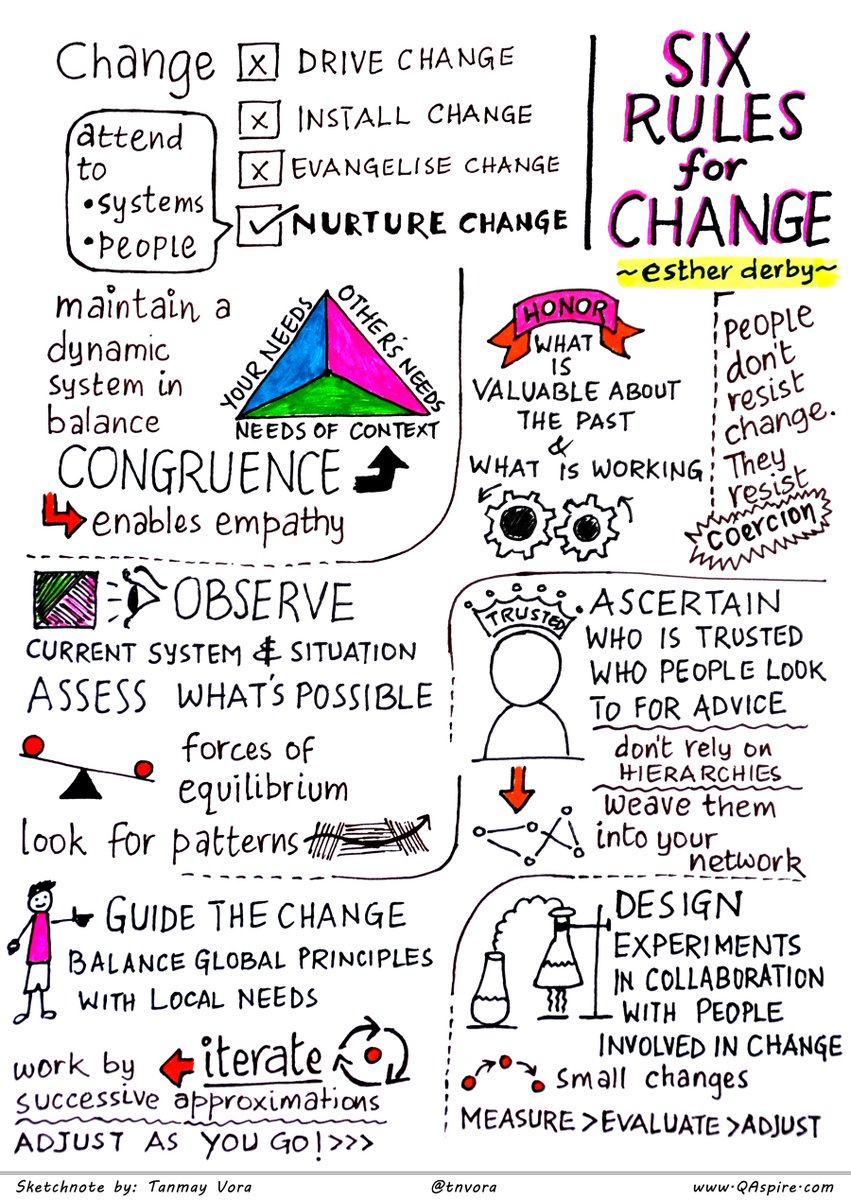 Change
DRIVE CHANGE
INSTALL CHANGE
EVANGELISE CHANGE
NURTURE CHANGE
attend
to
•systems
•people
SIX
RULES
for
CHANGE
~esther derby~
maintain a
dynamic
system in
balance
YOUR NEEDS
OTHER'S NEEDS
NEEDS OF CONTEXT
CONGRUENCE
enables empathy
HONOR
WHAT
IS
VALUABLE ABOUT
THE PAST
&
WHAT IS WORKING
PEOPLE
don't
resist
change.
They
resist
COERCION
OBSERVE
CURRENT SYSTEM & SITUATION
ASSESS WHAT'S POSSIBLE
forces of
equilibrium
look for patterns
TRUSTED
ASCERTAIN
WHO IS TRUSTED
WHO PEOPLE LOOK
TO FOR ADVICE
don't rely on
HIERARCHIES
weave them
into your
network
GUIDE THE CHANGE
BALANCE GLOBAL PRINCIPLES
WITH LOCAL NEEDS
work by
iterate
successive approximations
ADJUST AS YOU GO!>>>
DESIGN
EXPERIMENTS
IN COLLABORATION
WITH PEOPLE
INVOLVED IN CHANGE
small changes
MEASURE >EVALUATE >ADJUST
Sketchnote by: Tanmay Vora
@tnvora
www.QAspire.com